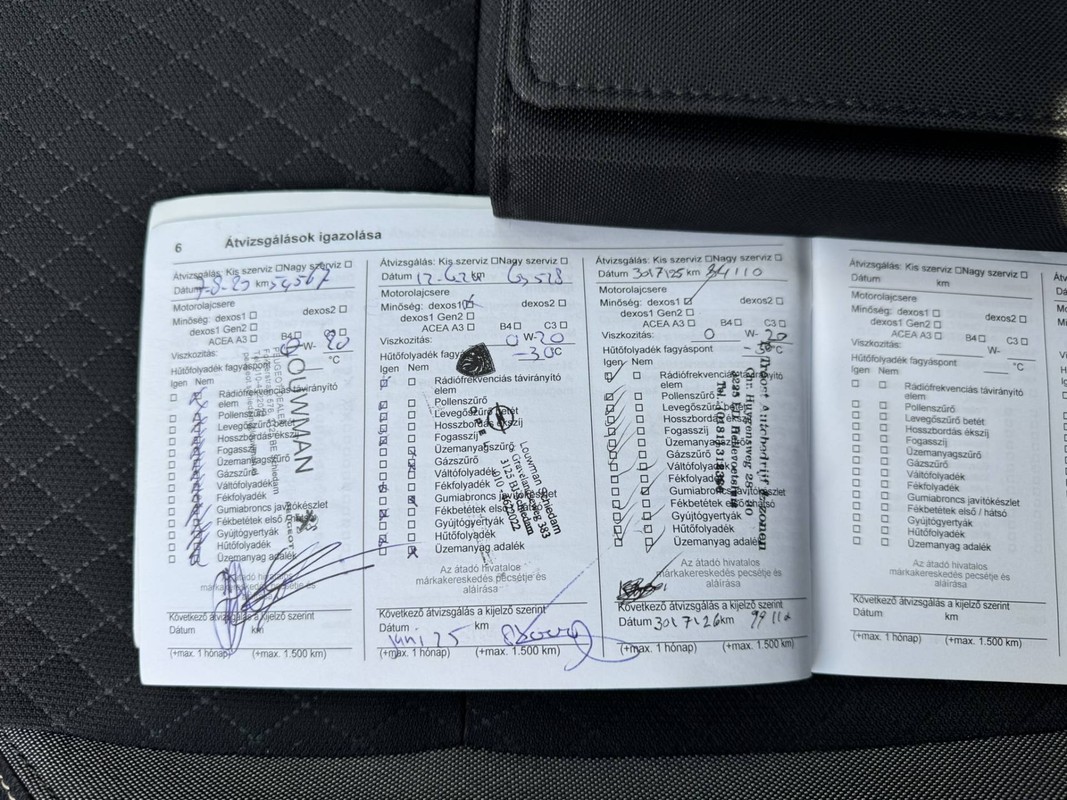 6 Átvizsgálások igazolása
Átvizsgálás: Kis szerviz Nagy szerviz
Dátum km 54567
Motorolajcsere
Minőség: dexos1 dexos2
dexos1 Gen2
ACEA A3 B4 C3
Viszkozitás: 0 W- 20
Hűtőfolyadék fagyáspont °C
Igen Nem
Rádiófrekvenciás távirányító
elem
Pollenszűrő
Levegőszűrő betét
Hosszbordás ékszíj
Fogasszíj
Üzemanyagszűrő
Gázszűrő
Váltófolyadék
Fékfolyadék
Gumiabroncs javítókészlet
Fékbetétek első / hátsó
Gyújtógyertyák
Hűtőfolyadék
Üzemanyag adalék
LOUWMAN
PEUGEOT
márkakereskedés
Következő átvizsgálás a kijelző szerint
Dátum km
(+max. 1 hónap) (+max. 1.500 km)
Átvizsgálás: Kis szerviz Nagy szerviz
Dátum km
Motorolajcsere
Minőség: dexos1 dexos2
dexos1 Gen2
ACEA A3 B4 C3
Viszkozitás: 0 W-20
Hűtőfolyadék -30°C
Igen Nem
Rádiófrekvenciás távirányító
elem
Pollenszűrő
Levegőszűrő betét
Hosszbordás ékszíj
Fogasszíj
Üzemanyagszűrő
Gázszűrő
Váltófolyadék
Fékfolyadék
Gumiabroncs javítókészlet
Fékbetétek első / hátsó
Gyújtógyertyák
Hűtőfolyadék
Üzemanyag adalék
Louwman Schiedam
's-Gravelandseweg 383
3125 BJ Schiedam
Az átadó hivatalos
márkakereskedés pecsétje és
aláírása
Következő átvizsgálás a kijelző szerint
Dátum juni 25 km
(+max. 1 hónap) (+max. 1.500 km)
Átvizsgálás: Kis szerviz Nagy szerviz
Dátum 30\7\25 km 84110
Motorolajcsere
Minőség: dexos1 dexos2
dexos1 Gen2
ACEA A3 B4 C3
Viszkozitás: 0 W- 20
Hűtőfolyadék fagyáspont °C
Igen Nem
Rádiófrekvenciás távirányító
elem
Pollenszűrő
Levegőszűrő betét
Hosszbordás ékszíj
Fogasszíj
Üzemanyagszűrő
Gázszűrő
Váltófolyadék
Fékfolyadék
Gumiabroncs javítókészlet
Fékbetétek első / hátsó
Gyújtógyertyák
Hűtőfolyadék
Üzemanyag adalék
Autobedrijf
Chr. Huygensweg 28-30
Hellevoetsluis
Az átadó hivatalos
márkakereskedés pecsétje és
aláírása
Következő átvizsgálás a kijelző szerint
Dátum 30\7\26 km
(+max. 1 hónap) (+max. 1.500 km)
Átvizsgálás: Kis szerviz Nagy szerviz
Dátum km
Motorolajcsere
Minőség: dexos1 dexos2
dexos1 Gen2
ACEA A3 B4 C3
Viszkozitás: W-
Hűtőfolyadék fagyáspont °C
Igen Nem
Rádiófrekvenciás távirányító
elem
Pollenszűrő
Levegőszűrő betét
Hosszbordás ékszíj
Fogasszíj
Üzemanyagszűrő
Gázszűrő
Váltófolyadék
Fékfolyadék
Gumiabroncs javítókészlet
Fékbetétek első / hátsó
Gyújtógyertyák
Hűtőfolyadék
Üzemanyag adalék
Az átadó hivatalos
márkakereskedés pecsétje és
aláírása
Következő átvizsgálás a kijelző szerint
Dátum km
(+max. 1 hónap) (+max. 1.500 km)